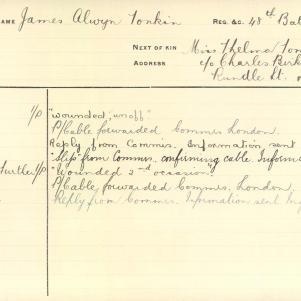 NAME James Alwyn Tonkin REG. &C. 48th Bat
NEXT OF KIN Miss Thelma Ton
ADDRESS c/o Charles Birk
Rundle St.
1/0 "Wounded, unoff"
P/Cable forwarded Commis. London.
Reply from Commis. Information sent
"Slip from Commis. confirming cable. Inform
Further 1/0 "Wounded 2nd occasion."
P/Cable forwarded Commis. London.
Reply from Commis. Information sent